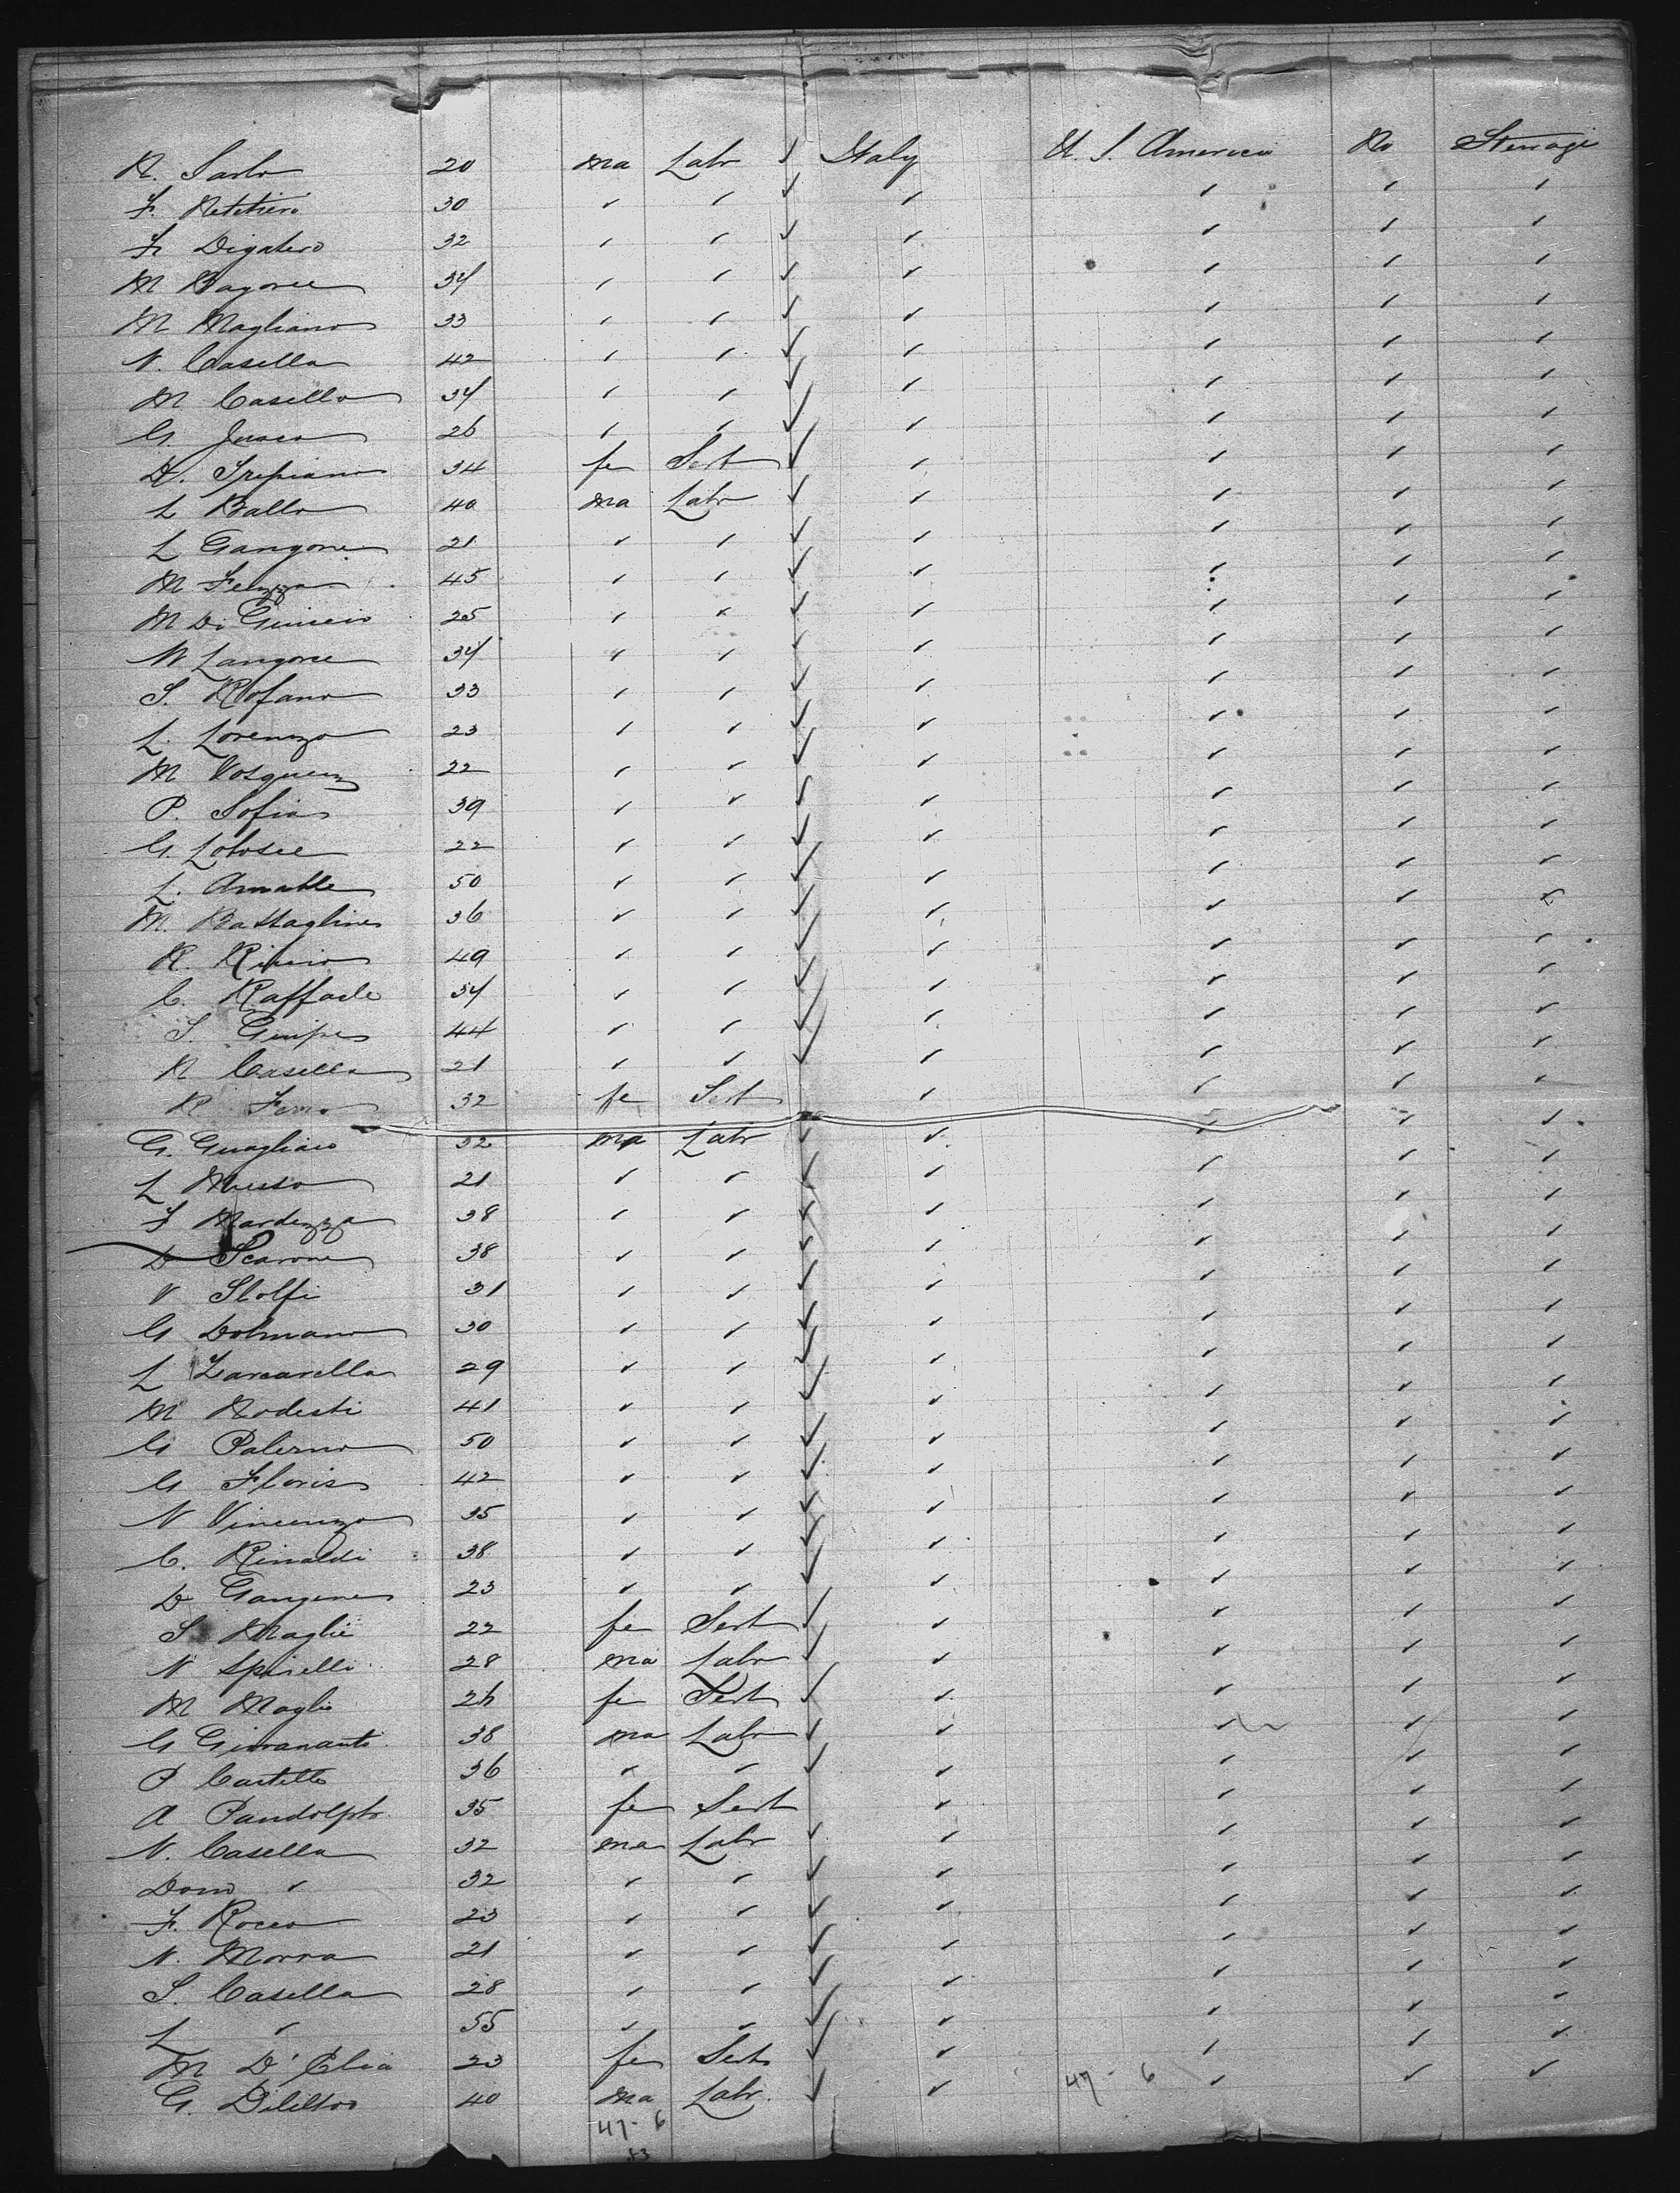 N. Sarlo 20 ma Labr ✓ Italy U. S. America No Steerage
F. 30 ✓ ✓ ✓ ✓ ✓ ✓ ✓
F. Digatero 32 ✓ ✓ ✓ ✓ ✓ ✓ ✓
M 34 ✓ ✓ ✓ ✓ ✓ ✓ ✓
M Magliano 33 ✓ ✓ ✓ ✓ ✓ ✓ ✓
N. Casella 42 ✓ ✓ ✓ ✓ ✓ ✓ ✓
M Casella 34 ✓ ✓ ✓ ✓ ✓ ✓ ✓
G. 26 ✓ ✓ ✓ ✓ ✓ ✓ ✓
D. 34 fe Sert ✓ ✓ ✓ ✓ ✓
L Ballo 40 ma Labr ✓ ✓ ✓ ✓ ✓
L Gangone 21 ✓ ✓ ✓ ✓ ✓ ✓ ✓
M Fezza 45 ✓ ✓ ✓ ✓ ✓ ✓ ✓
M Di 25 ✓ ✓ ✓ ✓ ✓ ✓ ✓
N Langone 34 ✓ ✓ ✓ ✓ ✓ ✓ ✓
S. Rofano 33 ✓ ✓ ✓ ✓ ✓ ✓ ✓
L. Lorenzo 23 ✓ ✓ ✓ ✓ ✓ ✓ ✓
M 22 ✓ ✓ ✓ ✓ ✓ ✓ ✓
P. Sofia 39 ✓ ✓ ✓ ✓ ✓ ✓ ✓
G. 22 ✓ ✓ ✓ ✓ ✓ ✓ ✓
L. 50 ✓ ✓ ✓ ✓ ✓ ✓ ✓
M. Battaglino 36 ✓ ✓ ✓ ✓ ✓ ✓ ✓
R. 49 ✓ ✓ ✓ ✓ ✓ ✓ ✓
C. Raffaele 34 ✓ ✓ ✓ ✓ ✓ ✓ ✓
S. 44 ✓ ✓ ✓ ✓ ✓ ✓ ✓
N Casella 21 ✓ ✓ ✓ ✓ ✓ ✓ ✓
R 32 fe Sert ✓ ✓ ✓ ✓
G. Guagliaco 32 ma Labr ✓ ✓ ✓ ✓ ✓
L Musso 21 ✓ ✓ ✓ ✓ ✓ ✓ ✓
F Mardezza 38 ✓ ✓ ✓ ✓ ✓ ✓ ✓
D Scarone 38 ✓ ✓ ✓ ✓ ✓ ✓ ✓
V Stolfi 31 ✓ ✓ ✓ ✓ ✓ ✓ ✓
G Dolmano 30 ✓ ✓ ✓ ✓ ✓ ✓ ✓
L Zarcarella 29 ✓ ✓ ✓ ✓ ✓ ✓ ✓
M Modesti 41 ✓ ✓ ✓ ✓ ✓ ✓ ✓
G Palermo 50 ✓ ✓ ✓ ✓ ✓ ✓ ✓
G Floris 42 ✓ ✓ ✓ ✓ ✓ ✓ ✓
N Vincenzo 35 ✓ ✓ ✓ ✓ ✓ ✓ ✓
C. Rinaldi 38 ✓ ✓ ✓ ✓ ✓ ✓ ✓
D Gangone 23 ✓ ✓ ✓ ✓ ✓ ✓ ✓
S Maglie 22 fe Sert ✓ ✓ ✓ ✓ ✓
N Spirelli 28 ma Labr ✓ ✓ ✓ ✓ ✓
M Maglie 26 fe Sert ✓ ✓ ✓ ✓ ✓
G 38 ma Labr ✓ ✓ ✓ ✓ ✓
P Castello 36 ✓ ✓ ✓ ✓ ✓ ✓ ✓
A Pandolpho 35 fe Sert ✓ ✓ ✓ ✓
N. Casella 32 ma Labr ✓ ✓ ✓ ✓ ✓
Dom ✓ 32 ✓ ✓ ✓ ✓ ✓ ✓ ✓
F. Rocco 23 ✓ ✓ ✓ ✓ ✓ ✓ ✓
N. Morra 21 ✓ ✓ ✓ ✓ ✓ ✓ ✓
S. Casella 28 ✓ ✓ ✓ ✓ ✓ ✓ ✓
L ✓ 55 ✓ ✓ ✓ ✓ ✓ ✓ ✓
M D'Elia 23 fe Sert ✓ ✓ ✓ ✓ ✓
G. 40 ma Labr. ✓ ✓ 47 - 6 ✓ ✓ ✓
47 - 6
53